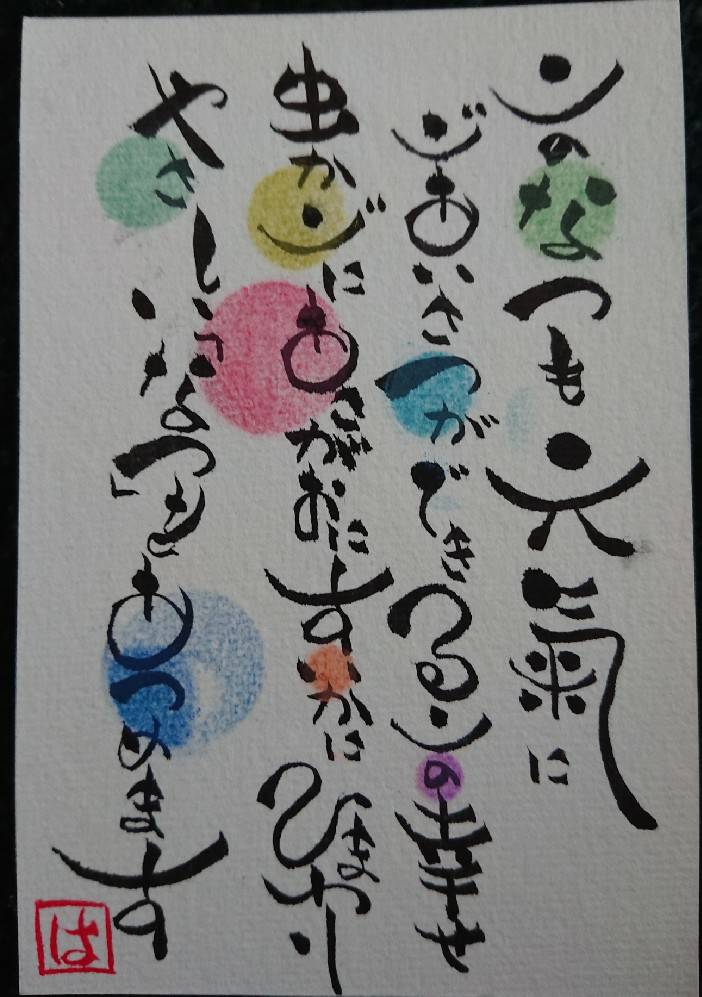 このなつも元氣に
ごあいさつができるこの幸せ
虫かごにあさがおにすいかにひまわり
やさしいなつをあつめます
は